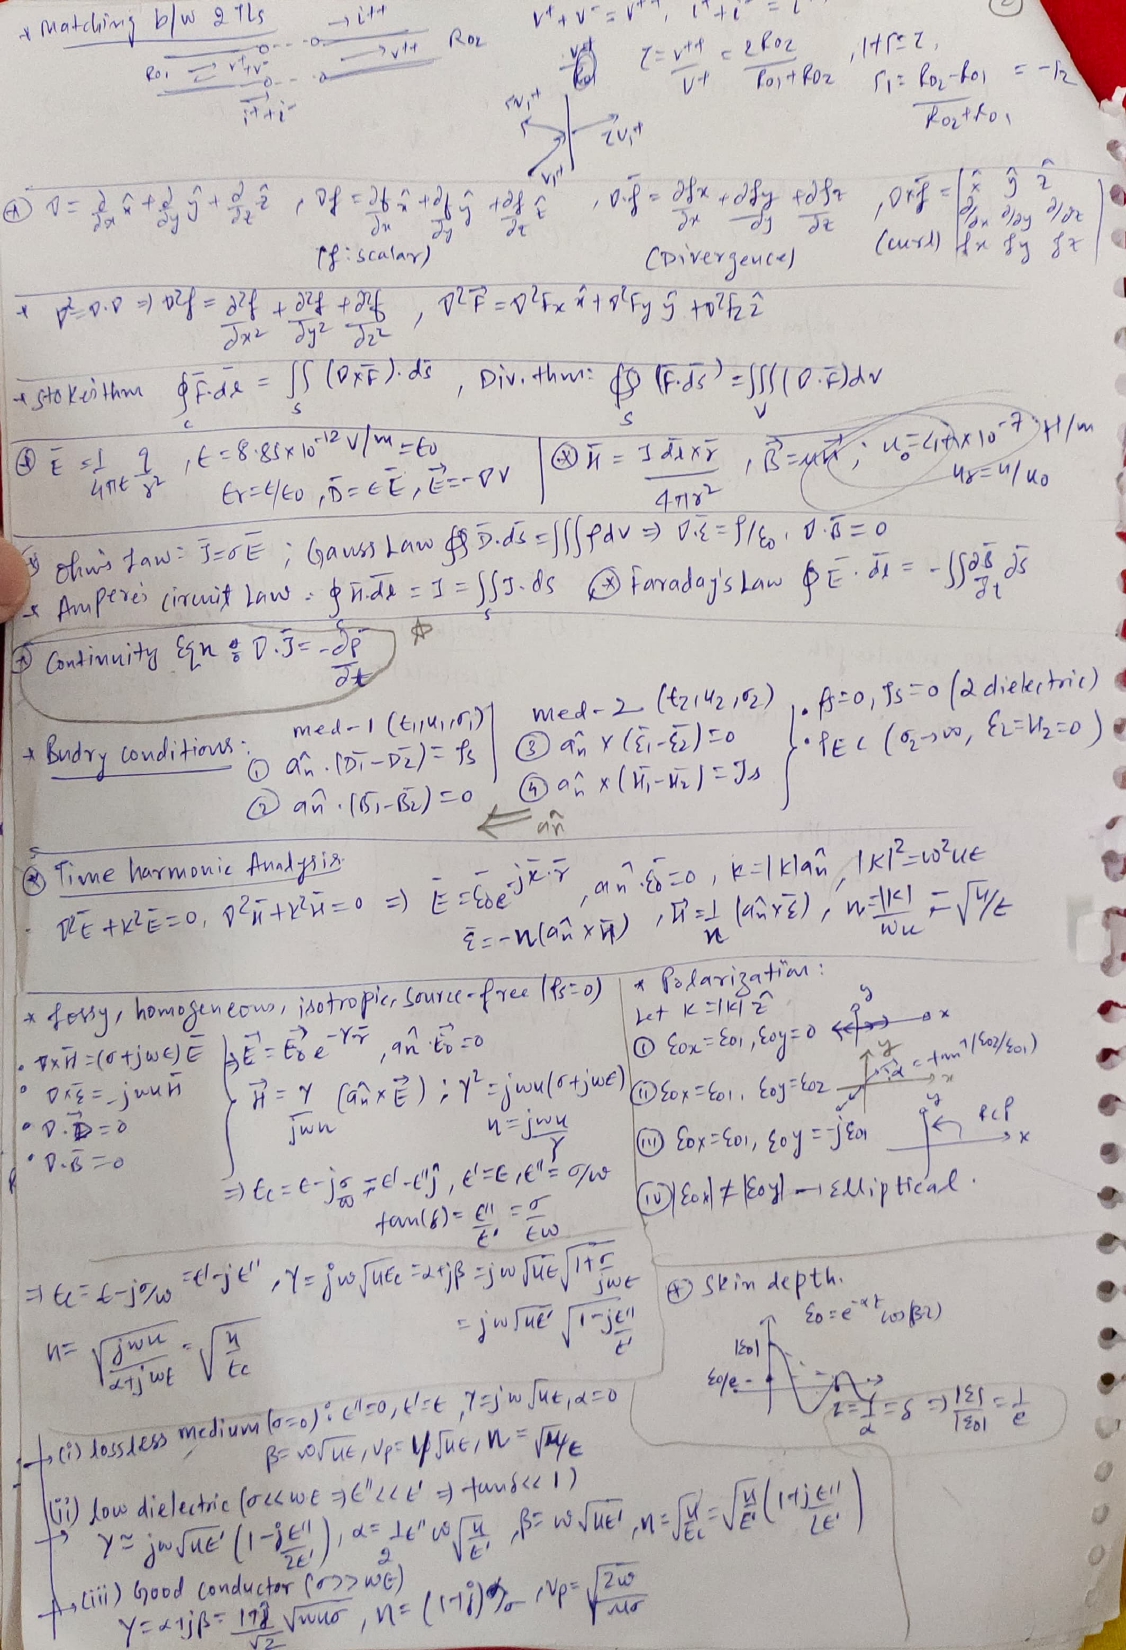 * Matching b/w 2 TLs → i++
V+ + V- = V++, i+ + i- = i
Ro1 V+ + V- → V++ Ro2
i+ + i-
τ = V++/V+ = 2Ro2/(Ro1+Ro2), 1+Γ=τ, Γ1 = (Ro2-Ro1)/(Ro2+Ro1) = -Γ2
ΓV1+ τV1+
V1+
∇ = ∂/∂x x̂ + ∂/∂y ŷ + ∂/∂z ẑ, ∇f = ∂f/∂x x̂ + ∂f/∂y ŷ + ∂f/∂z ẑ, ∇.f̄ = ∂fx/∂x + ∂fy/∂y + ∂fz/∂z, ∇xf̄ = |x̂ ŷ ẑ; ∂/∂x ∂/∂y ∂/∂z; fx fy fz|
(f: scalar) (Divergence) (curl)
* ∇² = ∇.∇ ⇒ ∇²f = ∂²f/∂x² + ∂²f/∂y² + ∂²f/∂z², ∇²F̄ = ∇²Fx x̂ + ∇²Fy ŷ + ∇²Fz ẑ
* Stokes thm ∮c F̄.dl = ∬s (∇xF̄).ds̄, Div. thm: ∯s (F̄.ds̄) = ∭v (∇.F̄)dv
Ē = 1/4πε q/r², ε = 8.85x10^-12 V/m = ε0
εr = ε/ε0, D̄ = εĒ, Ē = -∇V
H̄ = I dl x r̂/4πr², B̄ = μH̄; μ0 = 4πx10^-7 H/m
μr = μ/μ0
Ohm's Law: J̄=σĒ; Gauss Law ∯ D̄.ds̄ = ∭ρdv ⇒ ∇.Ē = ρ/ε0, ∇.B̄ = 0
* Ampere's circuit Law: ∮ H̄.dl = I = ∬s J̄.ds Faraday's Law ∮ Ē.dl = -∬∂B̄/∂t ds̄
Continuity Eqn: ∇.J̄ = -∂ρ/∂t
* Bndry conditions: med-1 (ε1,μ1,σ1) med-2 (ε2,μ2,σ2)
① ân.(D̄1-D̄2) = ρs
② ân.(B̄1-B̄2) = 0
③ ân x (Ē1-Ē2) = 0
④ ân x (H̄1-H̄2) = J̄s
• ρs=0, Js=0 (2 dielectric)
• PEC (σ2→∞, E2=H2=0)
ân
Time harmonic Analysis
∇²Ē + k²Ē = 0, ∇²H̄ + k²H̄ = 0 ⇒ Ē = Ē0 e^-jk̄.r̄, ân.Ē0 = 0, k = |k|ân, |k|² = ω²με
Ē = -η(ân x H̄), H̄ = 1/η (ân x Ē), η = |k|/ωμ = √μ/ε
* Lossy, homogeneous, isotropic, source-free (ρs=0)
• ∇xH̄ = (σ+jωε)Ē
• ∇xĒ = -jωμH̄
• ∇.D̄ = 0
• ∇.B̄ = 0
Ē = Ē0 e^-γr̄, ân.Ē0 = 0
H̄ = γ/jωμ (ân x Ē); γ² = jωμ(σ+jωε)
η = jωμ/γ
⇒ εc = ε - jσ/ω = ε' - ε''j, ε' = ε, ε'' = σ/ω
tan(δ) = ε''/ε' = σ/εω
* Polarization:
Let k = |k| ẑ
(i) E0x = E01, E0y = 0
(ii) E0x = E01, E0y = E02
α = tan^-1(E02/E01)
(iii) E0x = E01, E0y = -jE01
RCP
(iv) |E0x| ≠ |E0y| → Elliptical.
⇒ εc = ε - jσ/ω = ε' - jε'', γ = jω√μεc = α+jβ = jω√με √1+σ/jωε
= jω√με' √1-jε''/ε'
η = √jωμ/α+jωε = √μ/εc
Skin depth.
E0 = e^-αz cos(βz)
|E0|
E0/e
z = 1/α = δ ⇒ |E|/|E0| = 1/e
(i) lossless medium (σ=0): ε''=0, ε'=ε, γ=jω√με, α=0
β = ω√με, vp = 1/√με, η = √μ/ε
(ii) low dielectric (σ<<ωε ⇒ ε''<<ε' ⇒ tanδ<<1)
γ ≈ jω√με' (1 - jε''/2ε'), α = 1/2 ε''ω√μ/ε', β = ω√με', η = √μ/εc = √μ/ε' (1+jε''/2ε')
(iii) Good conductor (σ>>ωε)
γ = α+jβ = 1+j/√2 √ωμσ, η = (1+j)α/σ, vp = √2ω/μσ